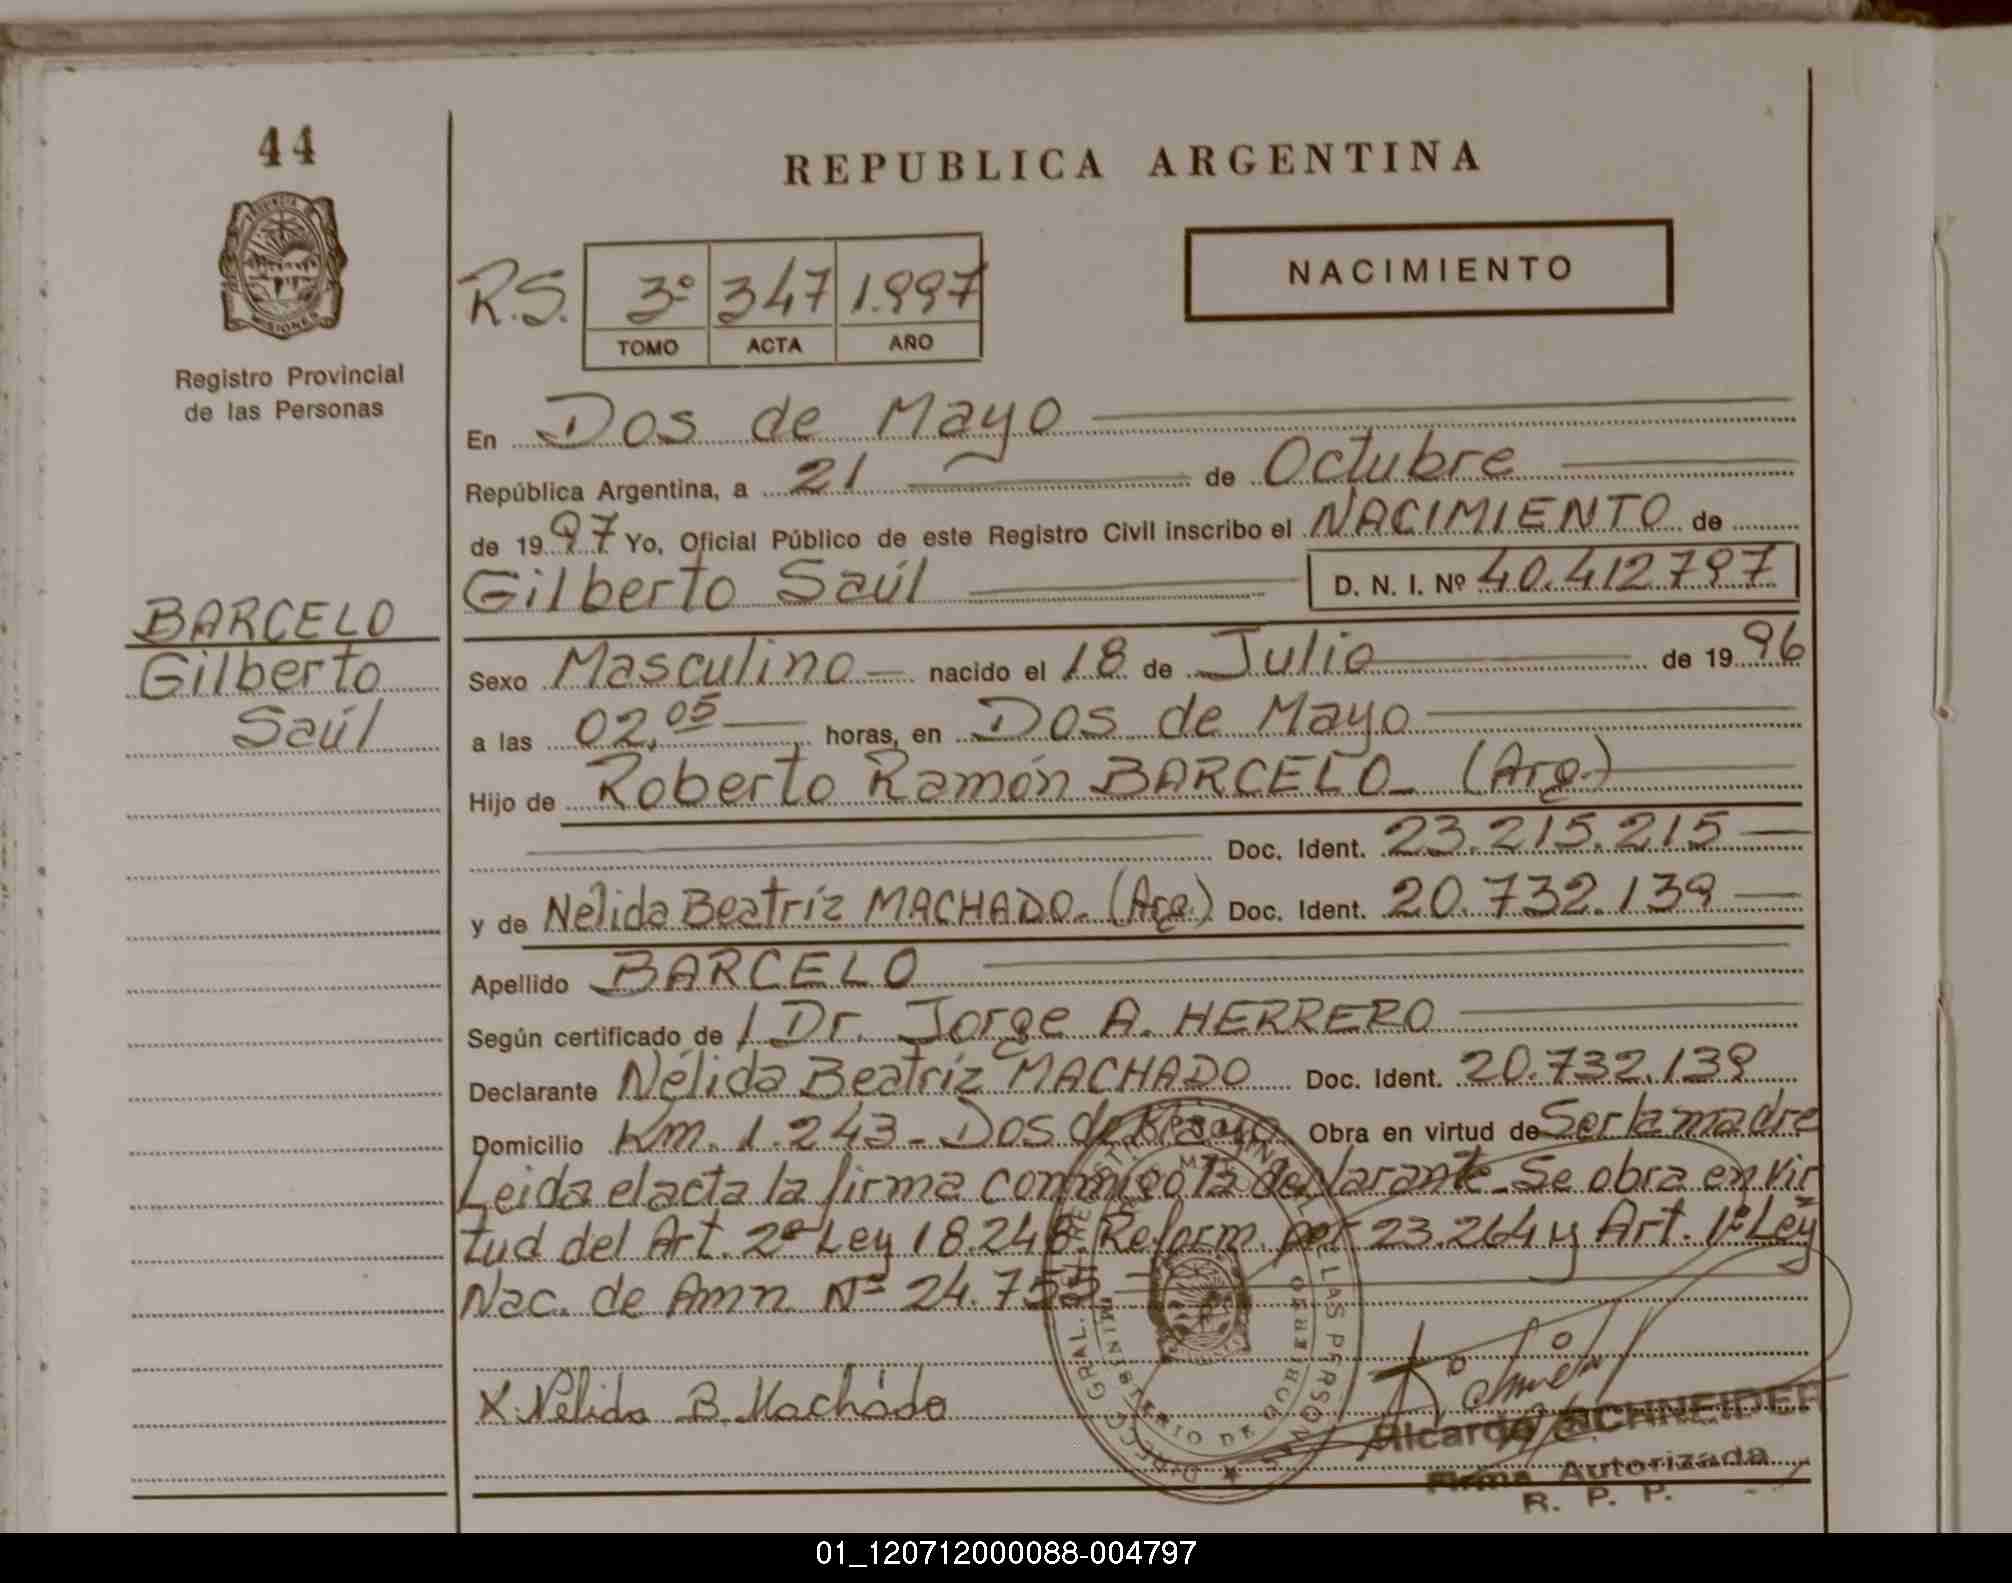 44
MISIONES
Registro Provincial
de las Personas
BARCELO
Gilberto
Saúl
REPUBLICA ARGENTINA
NACIMIENTO
R.S. 3º 347 1.997
TOMO ACTA AÑO
En Dos de Mayo
República Argentina, a 21 de Octubre
de 1997 Yo, Oficial Público de este Registro Civil inscribo el NACIMIENTO de
Gilberto Saúl D. N. I. Nº 40.412797
Sexo Masculino nacido el 18 de Julio de 1996
a las 02,05 horas, en Dos de Mayo
Hijo de Roberto Ramón BARCELO_ (Arg.)
Doc. Ident. 23.215.215
y de Nélida Beatríz MACHADO_ (Arg.) Doc. Ident. 20.732.139
Apellido BARCELO
Según certificado de / Dr. Jorge A. HERRERO
Declarante Nélida Beatríz MACHADO Doc. Ident. 20.732.139
Domicilio Km. 1.243 - Dos de Mayo Obra en virtud de Ser la madre
Leida el acta la firma conmigo la declarante_ Se obra en vir
tud del Art. 2º Ley 18.248. Reform. por 23.264 y Art. 1º Ley
Nac. de Amn. Nº 24.755
X Nélida B. Machado
Ricardo SCHNEIDER
Firma Autorizada
R. P. P.
01_120712000088-004797